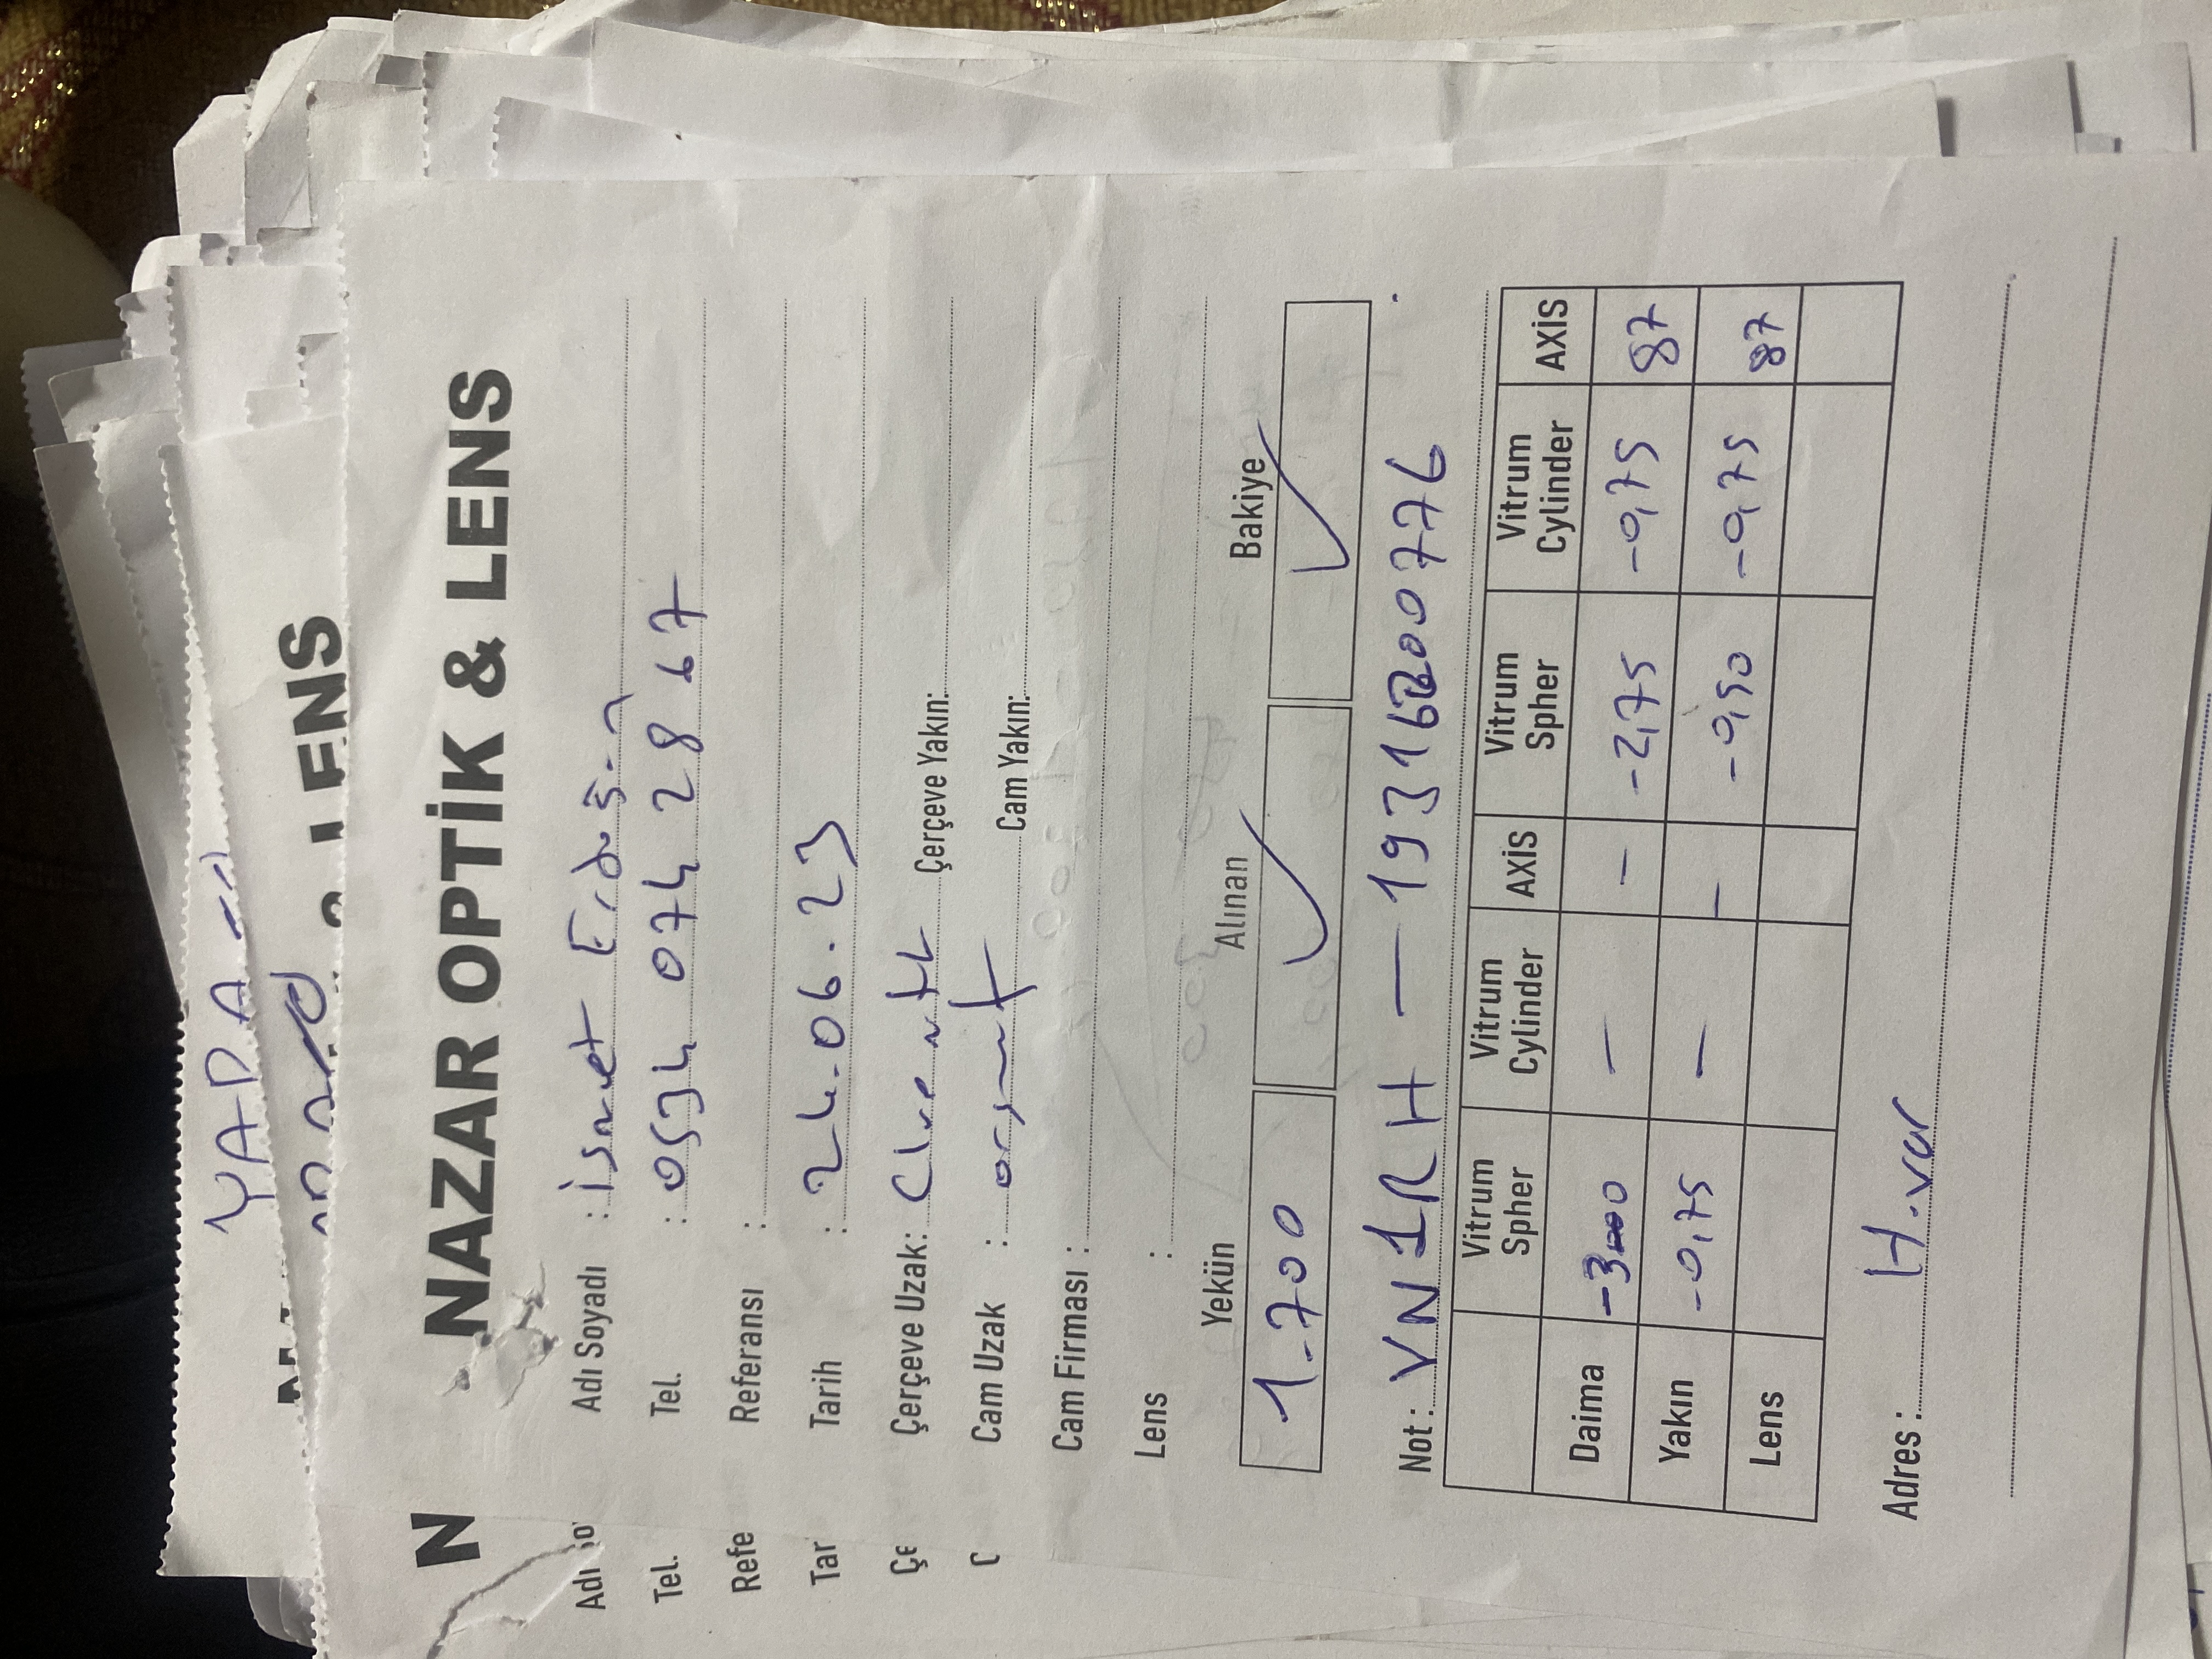 YAPA
& LENS
N
NAZAR OPTİK & LENS
Adı So
Adı Soyadı : İsmet Erdoğan
Tel.
Tel. : 0534 074 28 67
Refe
Referansı :
Tar
Tarih : 24.06.23
Çe
Çerçeve Uzak: Çerçeve Yakın:
C
Cam Uzak : Cam Yakın:
Cam Firması :
Lens :
Yekün Alınan Bakiye
1.700 ✓ ✓
Not : VN1RH — 19316200776
Vitrum Spher Vitrum Cylinder AXİS Vitrum Spher Vitrum Cylinder AXİS
Daima -3,00 — — -2,75 -0,75 87
Yakın -0,75 — — -0,50 -0,75 87
Lens
Adres : H.var